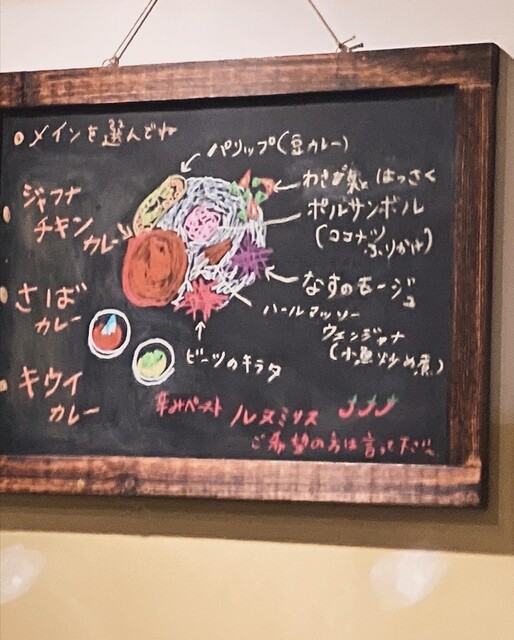 メインを選んでね
ジャフナ
チキン
カレー
さば
カレー
キウイ
カレー
パリップ(豆カレー)
わさび菜と はっさく
ポルサンボル
(ココナッツ
ふりかけ)
なすのモージュ
ハールマッソー
ウェンジャナ
(小魚炒め煮)
ビーツのキラタ
辛みペースト ルヌミリス
ご希望の方は言って下さい